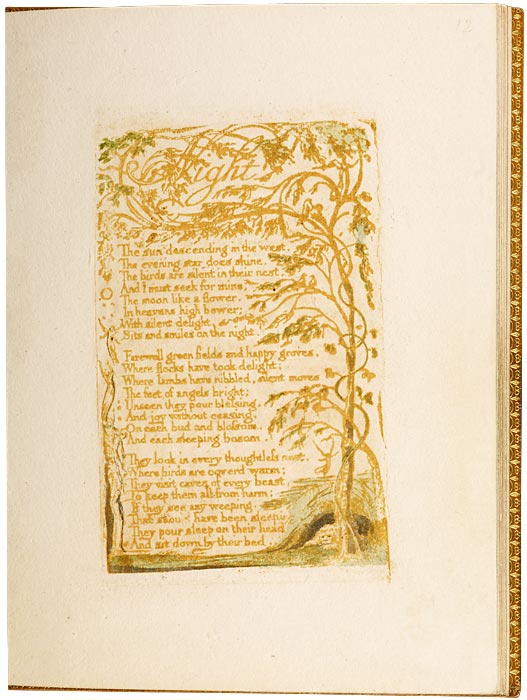 12
Night
The sun descending in the west.
The evening star does shine.
The birds are silent in their nest.
And I must seek for mine.
The moon like a flower,
In heavens high bower;
With silent delight,
Sits and smiles on the night.
Farewell green fields and happy groves,
Where flocks have took delight;
Where lambs have nibbled, silent moves
The feet of angels bright;
Unseen they pour blessing,
And joy without ceasing,
On each bud and blossom,
And each sleeping bosom.
They look in every thoughtless nest,
Where birds are coverd warm;
They visit caves of every beast,
To keep them all from harm;
If they see any weeping,
That should have been sleeping
They pour sleep on their head
And sit down by their bed.